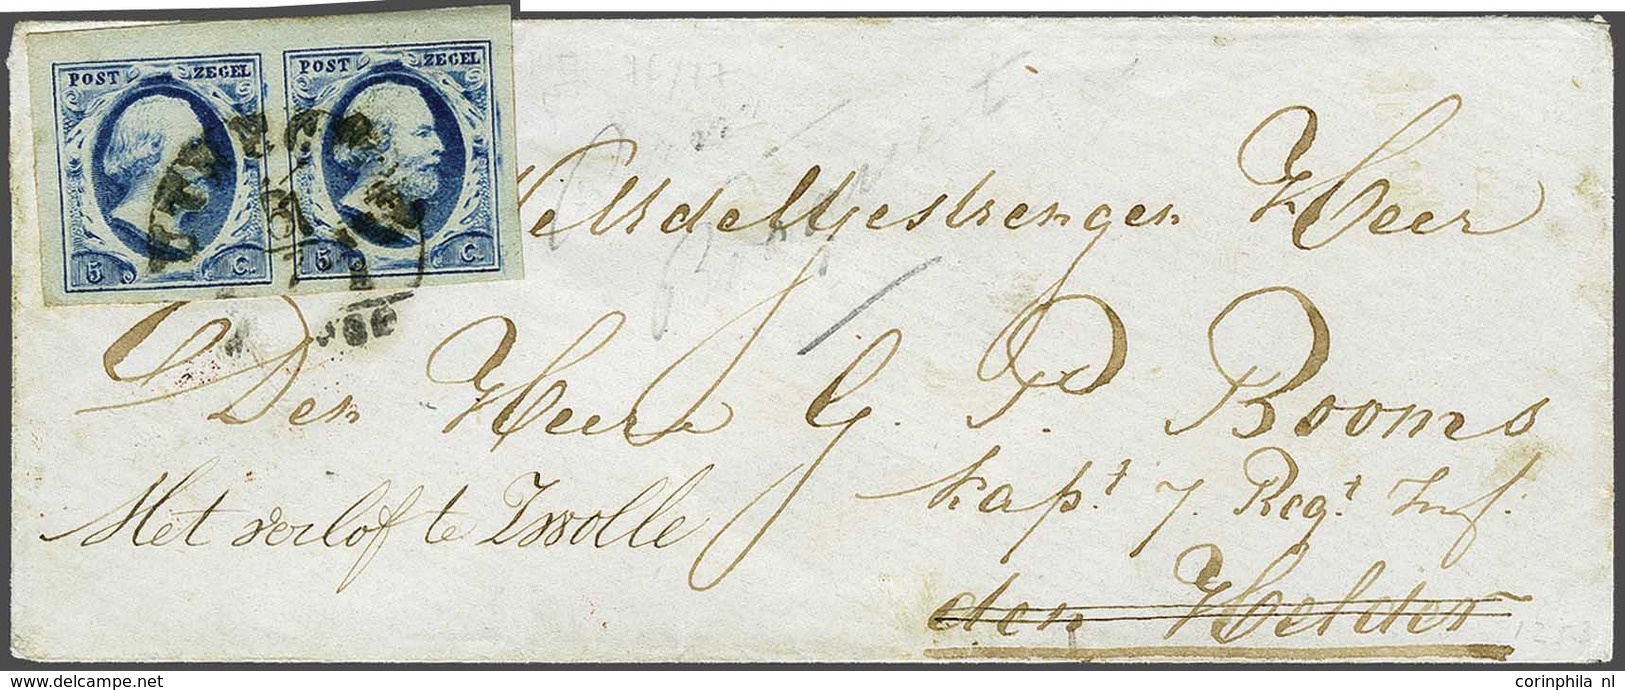 POST ZEGEL POST ZEGEL
5 C. 5 C.
UTRECHT
WelEdelGestrengen Heer
Den Heere G. P. Booms
kapt 7. Regt Inf.
Met verlof te Zwolle
den Helder
www.delcampe.net
corinphila_nl